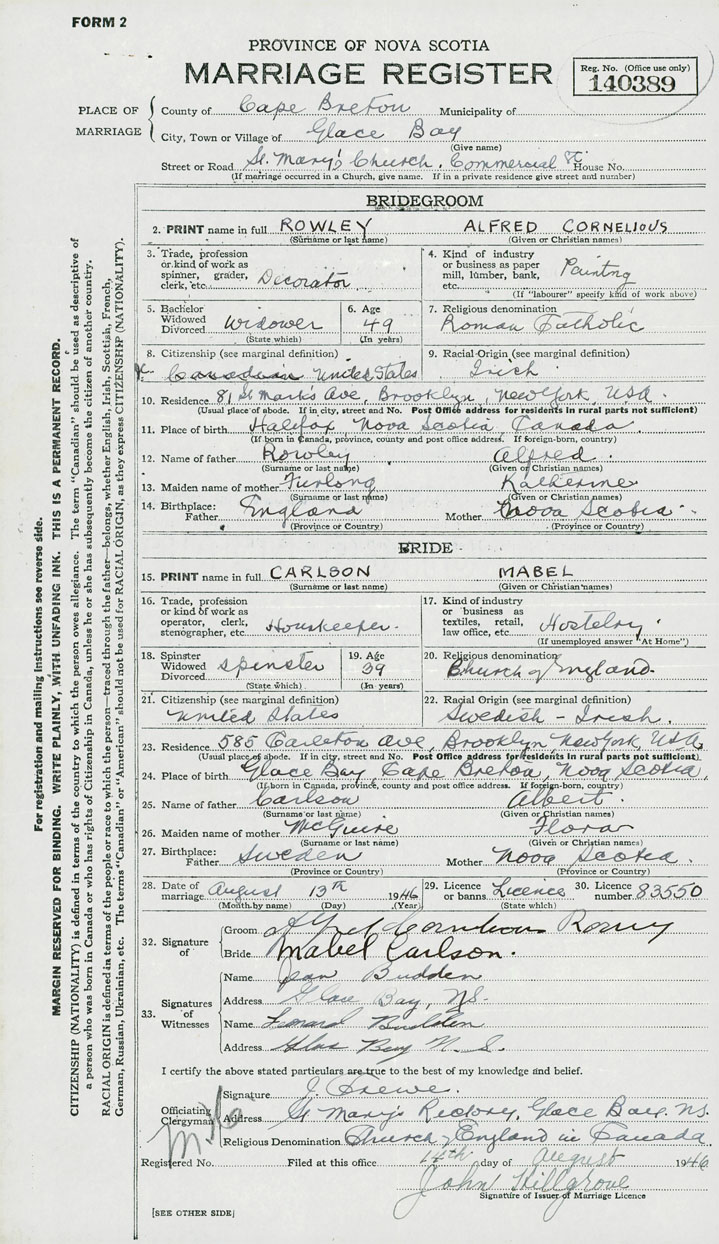 FORM 2
PROVINCE OF NOVA SCOTIA
MARRIAGE REGISTER
Reg. No. (Office use only)
140389
PLACE OF MARRIAGE
County of Cape Breton Municipality of
City, Town or Village of Glace Bay
(Give name)
Street or Road St. Mary's Church. Commercial St. House No.
(If marriage occurred in a Church, give name. If in a private residence give street and number)
BRIDEGROOM
2. PRINT name in full ROWLEY ALFRED CORNELIOUS
(Surname or last name) (Given or Christian names)
3. Trade, profession or kind of work as spinner, grader, clerk, etc. Decorator
4. Kind of industry or business as paper mill, lumber, bank, etc. Painting
(If "labourer" specify kind of work above)
5. Bachelor Widowed Divorced Widower
(State which)
6. Age 49
(In years)
7. Religious denomination
Roman Catholic
8. Citizenship (see marginal definition)
Canadian United States
9. Racial Origin (see marginal definition)
Irish
10. Residence 81 St. Mark's Ave, Brooklyn, New York, USA.
(Usual place of abode. If in city, street and No. Post Office address for residents in rural parts not sufficient)
11. Place of birth Halifax Nova Scotia Canada
(If born in Canada, province, county and post office address. If foreign-born, country)
12. Name of father Rowley Alfred.
(Surname or last name) (Given or Christian names)
13. Maiden name of mother Furlong Katherine
(Surname or last name) (Given or Christian names)
14. Birthplace: Father England Mother Nova Scotia
(Province or Country) (Province or Country)
BRIDE
15. PRINT name in full CARLSON MABEL
(Surname or last name) (Given or Christian names)
16. Trade, profession or kind of work as operator, clerk, stenographer, etc. Houskeeper.
17. Kind of industry or business as textiles, retail, law office, etc. Hostelry
(If unemployed answer "At Home")
18. Spinster Widowed Divorced Spinster
(State which)
19. Age 39
(In years)
20. Religious denomination
Church of England.
21. Citizenship (see marginal definition)
United States
22. Racial Origin (see marginal definition)
Swedish - Irish.
23. Residence 585 Carleton Ave, Brooklyn, New York, USA
(Usual place of abode. If in city, street and No. Post Office address for residents in rural parts not sufficient)
24. Place of birth Glace Bay, Cape Breton, Nova Scotia,
(If born in Canada, province, county and post office address. If foreign-born, country)
25. Name of father Carlson Albert.
(Surname or last name) (Given or Christian names)
26. Maiden name of mother McGuire Flora
(Surname or last name) (Given or Christian names)
27. Birthplace: Father Sweden Mother Nova Scotia.
(Province or Country) (Province or Country)
28. Date of marriage August 13th 1946
(Month by name) (Day) (Year)
29. Licence or banns. Licence
(State which)
30. Licence number 83550
32. Signature of
Groom Alfred Cornelious Rowley
Bride Mabel Carlson.
33. Signatures of Witnesses
Name Jean Budden
Address Glace Bay, NS.
Name Budden
Address Glace Bay N. S.
I certify the above stated particulars are true to the best of my knowledge and belief.
Officiating Clergyman
Signature J. Frewe.
Address St Mary's Rectory, Glace Bay. NS.
Religious Denomination Church of England in Canada
Registered No. Filed at this office 14th day of August 1946
John Hillgrove
Signature of Issuer of Marriage Licence
[SEE OTHER SIDE]
For registration and mailing instructions see reverse side.
MARGIN RESERVED FOR BINDING. WRITE PLAINLY, WITH UNFADING INK. THIS IS A PERMANENT RECORD.
CITIZENSHIP (NATIONALITY) is defined in terms of the country to which the person owes allegiance. The term "Canadian" should be used as descriptive of
a person who was born in Canada or who has rights of Citizenship in Canada, unless he or she has subsequently become the citizen of another country.
RACIAL ORIGIN is defined in terms of the people or race to which the person—traced through the father—belongs, whether English, Irish, Scottish, French,
German, Russian, Ukrainian, etc. The terms "Canadian" or "American" should not be used for RACIAL ORIGIN, as they express CITIZENSHIP (NATIONALITY).